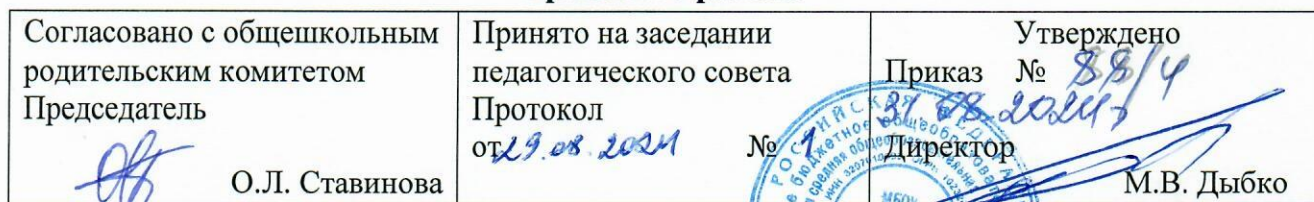 Согласовано с общешкольным
родительским комитетом
Председатель
О.Л. Ставинова
Принято на заседании
педагогического совета
Протокол
от 29.08.2024 № 1
Утверждено
Приказ № 88/4
31.08.2024г
Директор
М.В. Дыбко